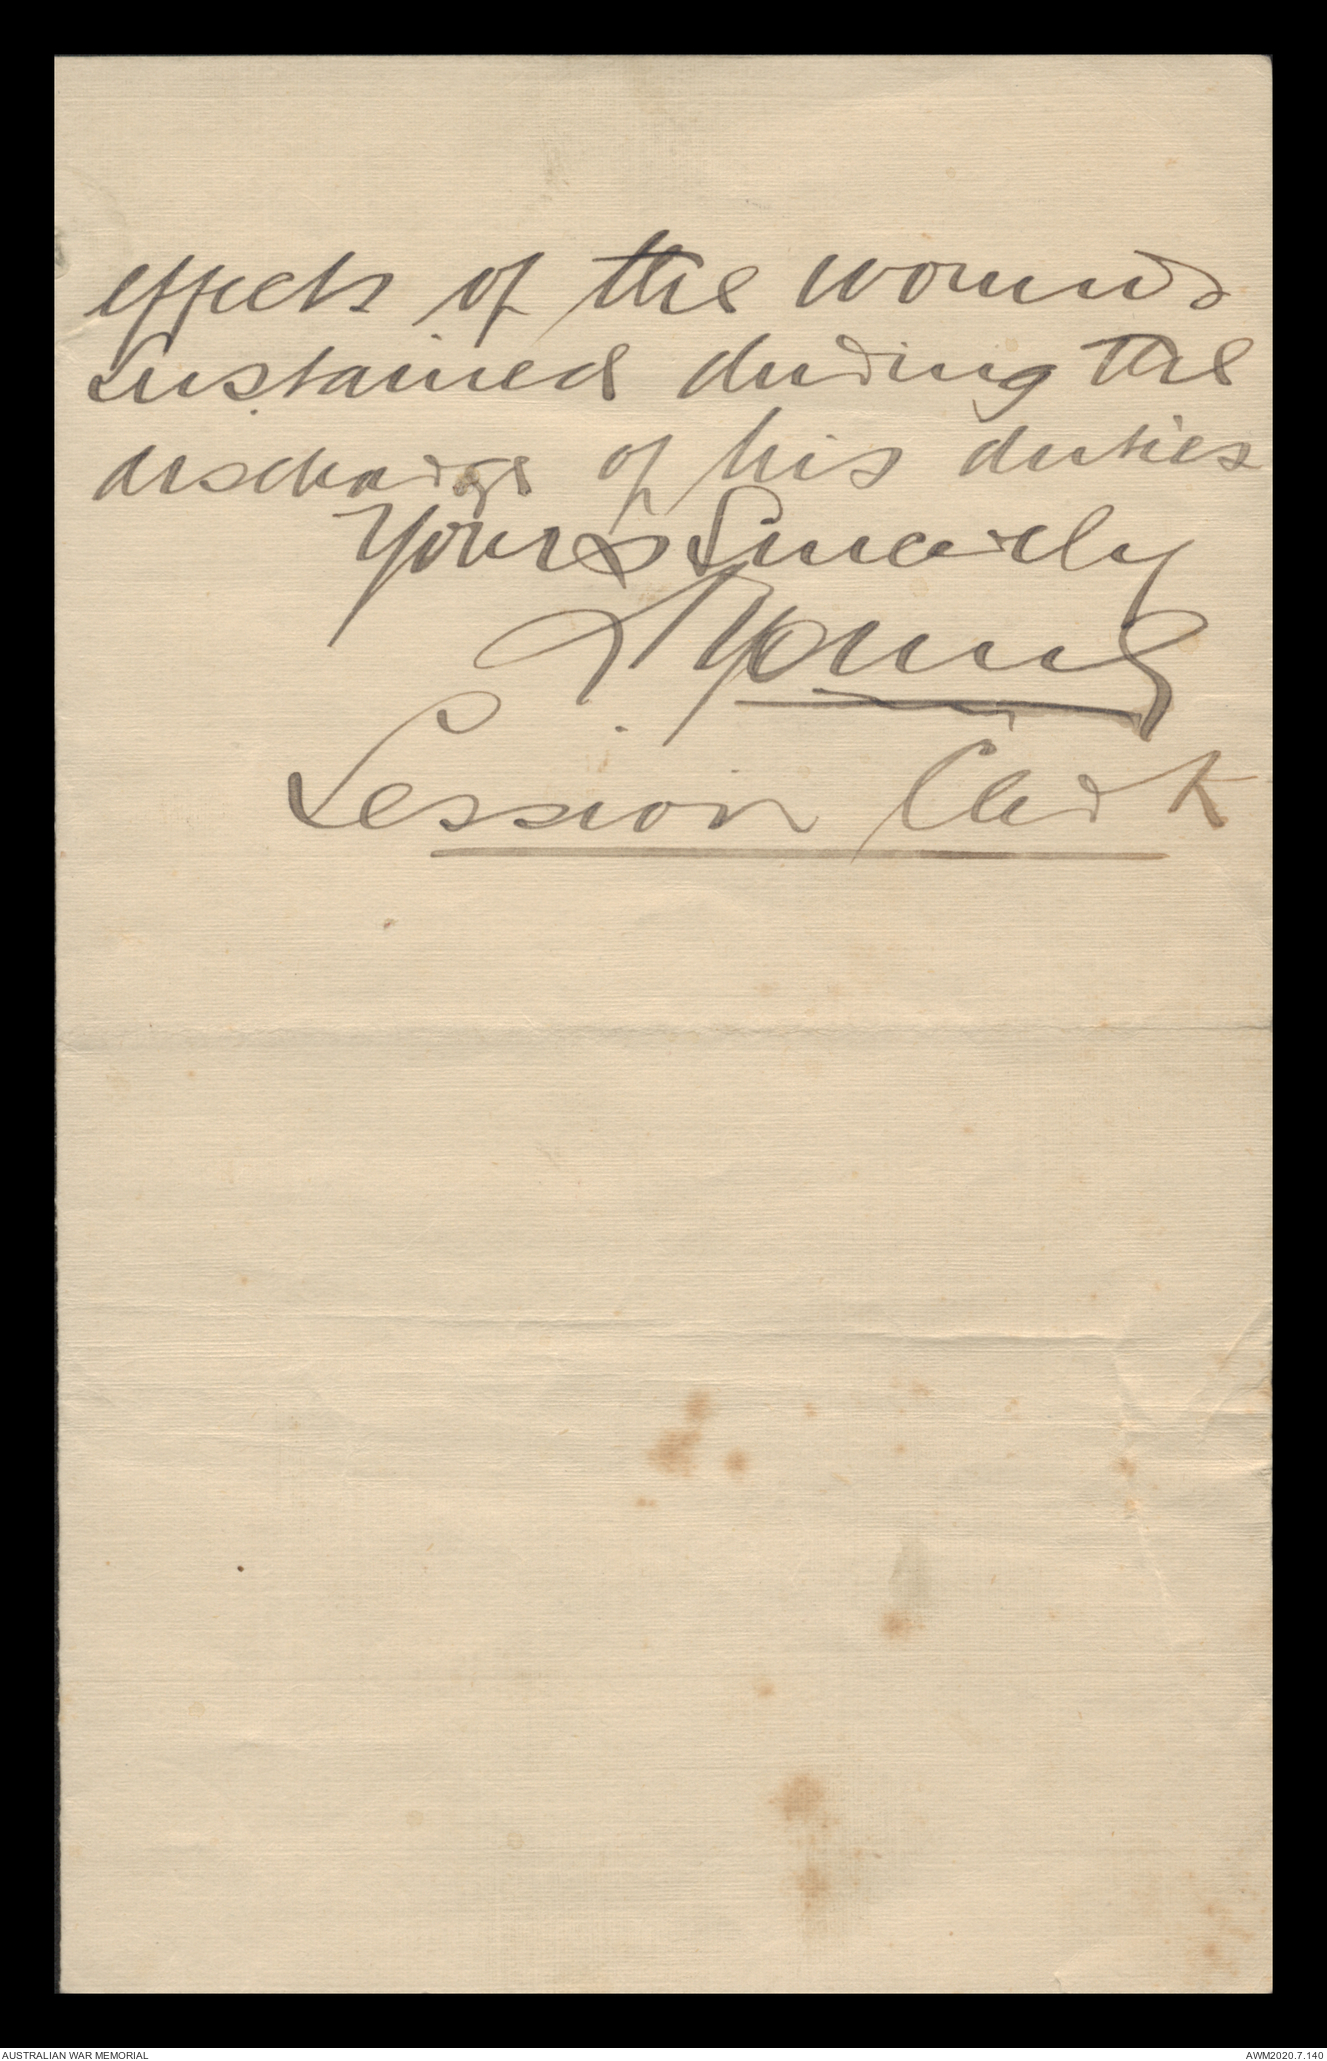 effects of the wounds
sustained during the
discharge of his duties
Yours Sincerely
Young
Session Clerk
AUSTRALIAN WAR MEMORIAL
AWM2020.7.140